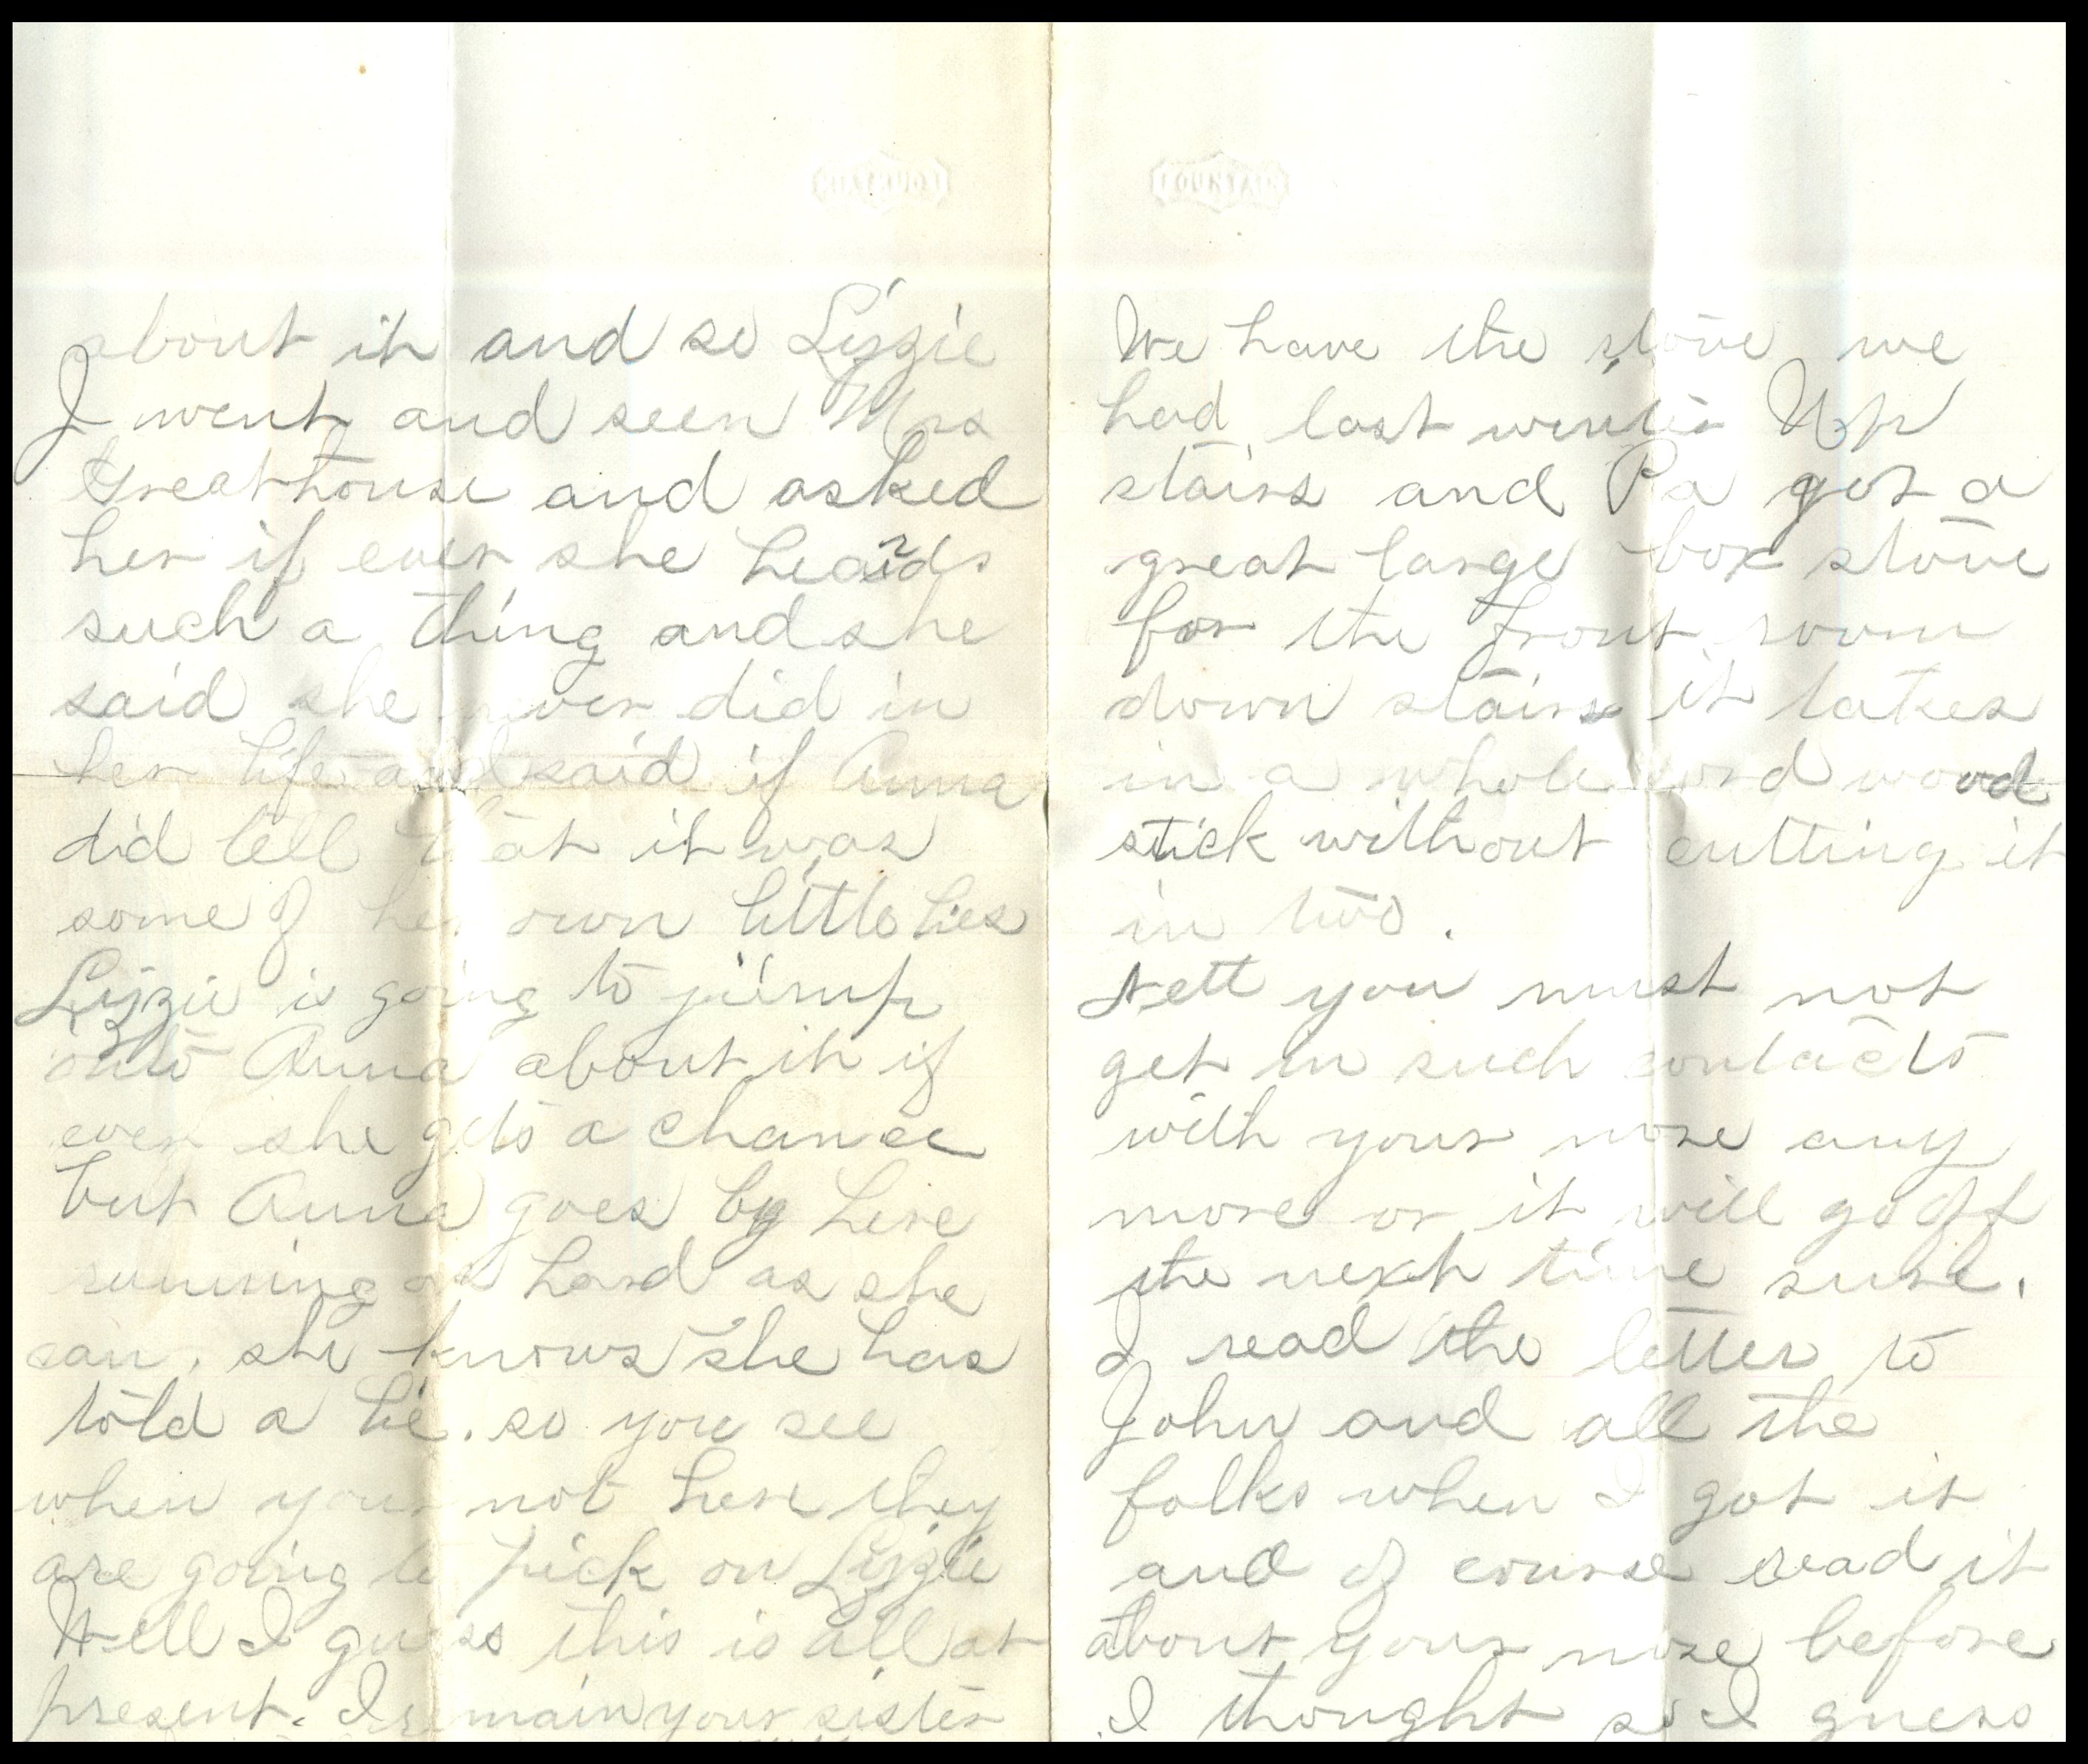 FOUNTAIN
about it and so Lizzie
I went and seen Mrs
Greathouse and asked
her if ever she heards
such a thing and she
said she never did in
her life and said if Anna
did tell that it was
some of her own little lies
Lizzie is going to jump
onto Anna about it if
ever she gets a chance
but Anna goes by here
running as hard as she
can. she knows she has
told a lie. so you see
when your not here they
are going to pick on Lizzie
Well I guess this is all at
present. I remain your sister
FOUNTAIN
We have the stove we
had last winter Up
stairs and Pa got a
great large box stove
for the front room
down stairs it takes
in a whole cord wood
stick without cutting it
in two.
Nett you must not
get in such contacts
with your nose any
more or it will go off
the next time sure.
I read the letter to
John and all the
folks when I got it
and of course read it
about your nose before
I thought so I guess